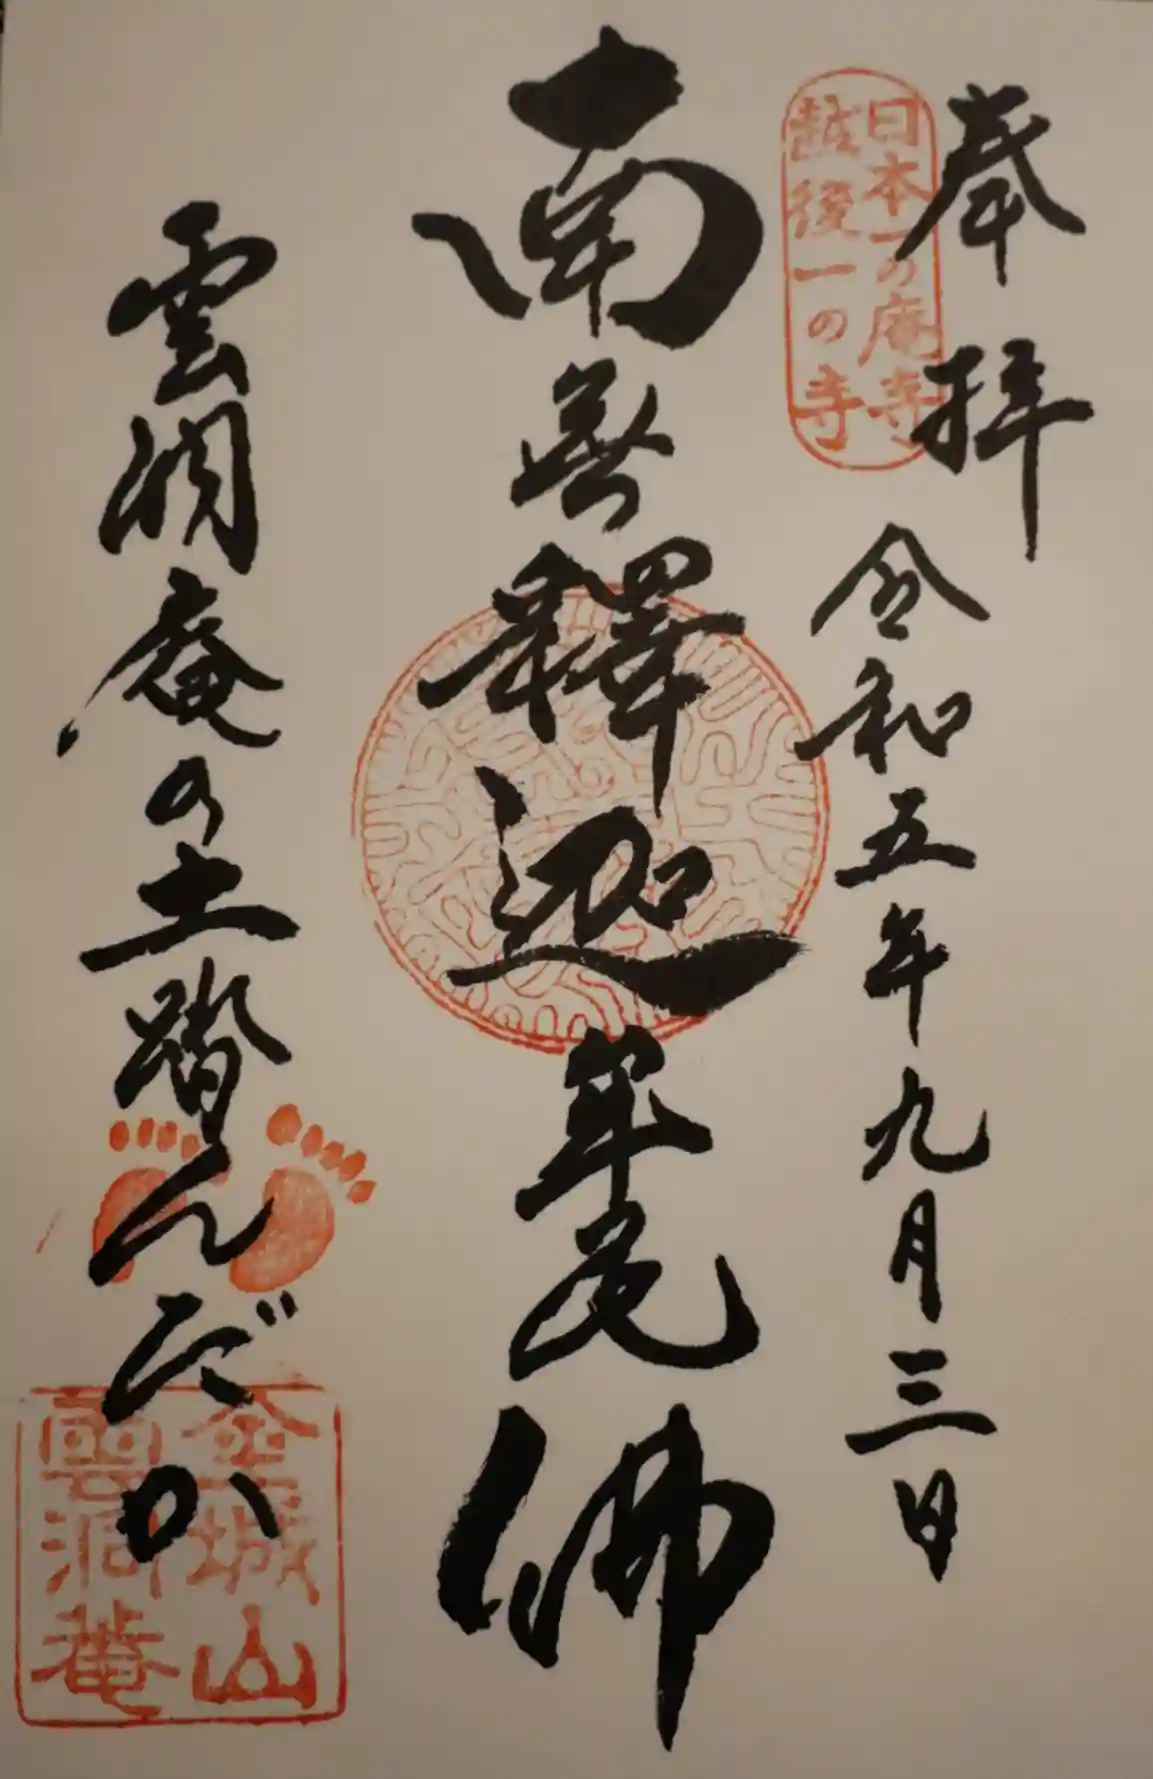 奉拝
令和五年九月三日
日本一の庵寺
越後一の寺
南無釋迦牟尼佛
雲洞庵の土踏んだか
金城山
雲洞菴